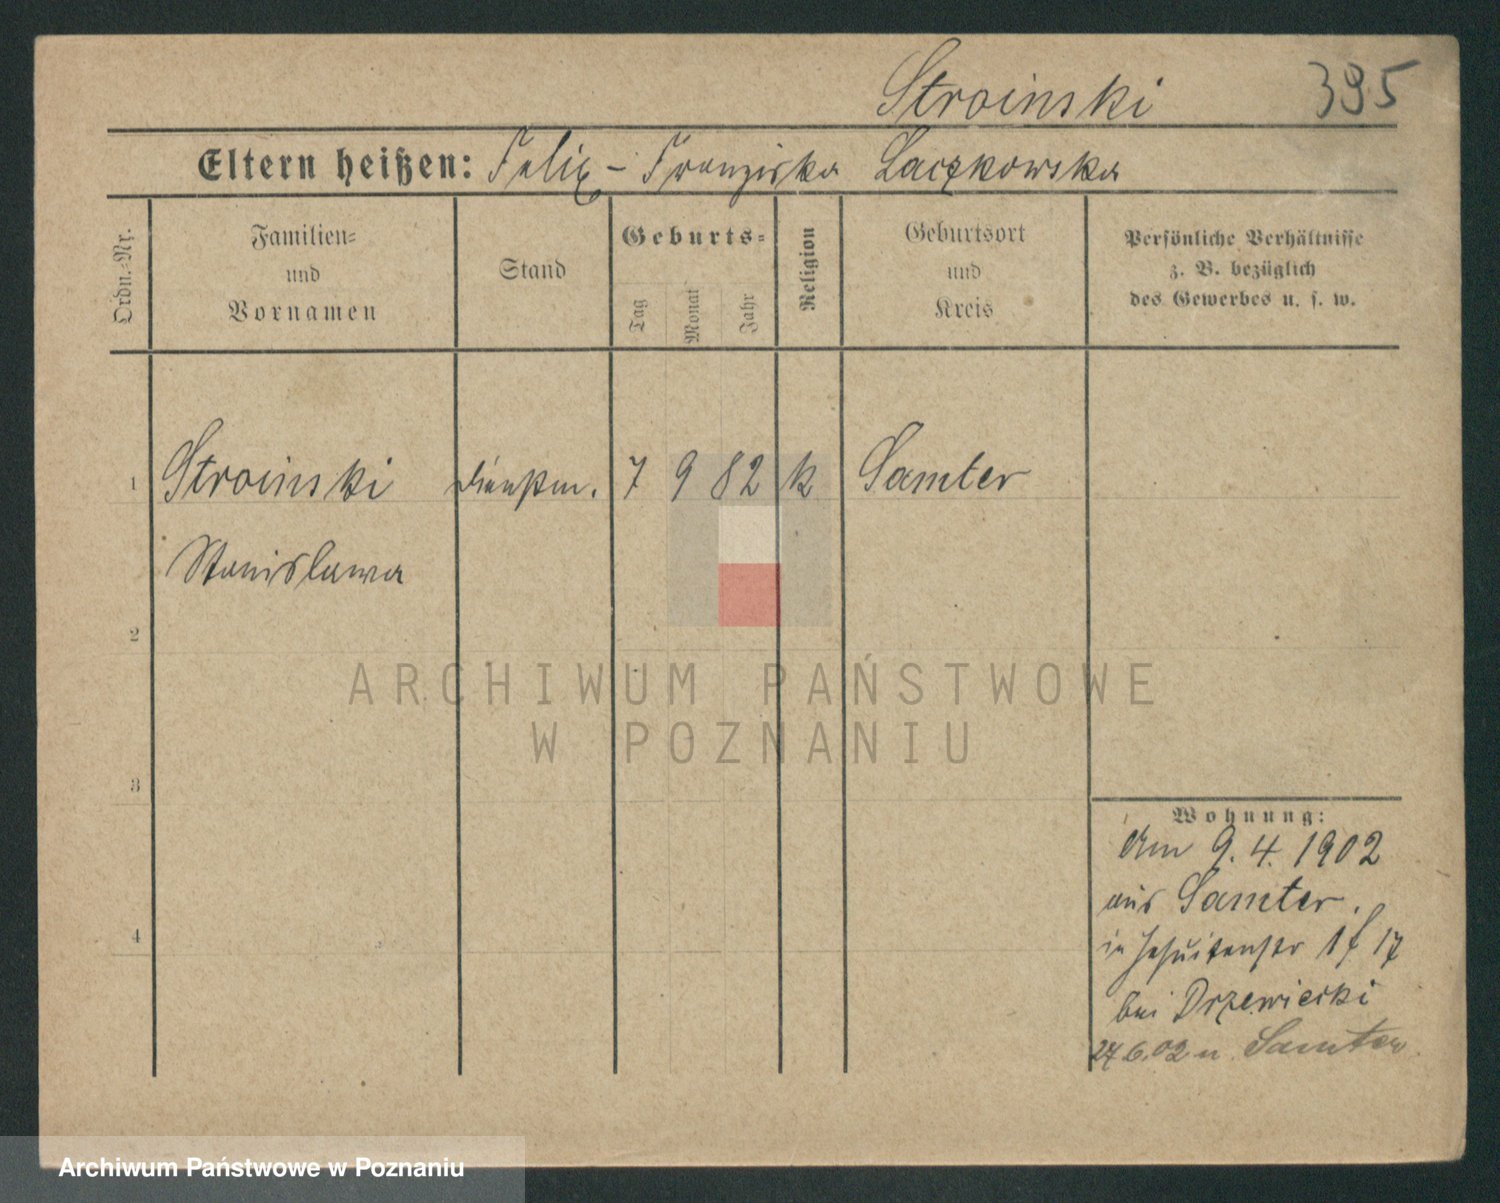 Stroinski 395
Eltern heißen: Felix - Franziska Laczkowska
Ordn.-Nr.
Familien-
und
Vornamen
Stand
Geburts-
Tag
Monat
Jahr
Religion
Geburtsort
und
Kreis
Persönliche Verhältnisse
z. B. bezüglich
des Gewerbes u. s. w.
1 Stroinski Dienstm. 7 9 82 k Samter
Stanislawa
2
3
4
Wohnung:
Am 9. 4. 1902
aus Samter.
in Jesuitenstr 17
bei Drzewiecki
27.6.02 n. Samter
ARCHIWUM PAŃSTWOWE
W POZNANIU
Archiwum Państwowe w Poznaniu